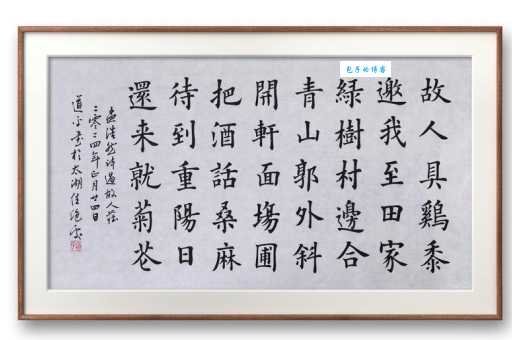 故人具鷄黍
邀我至田家
緑樹村邊合
青山郭外斜
開軒面塲圃
把酒話桑麻
待到重陽日
還来就菊花
孟浩然诗過故人莊
二零二四年正月廿四日
書於太湖佳